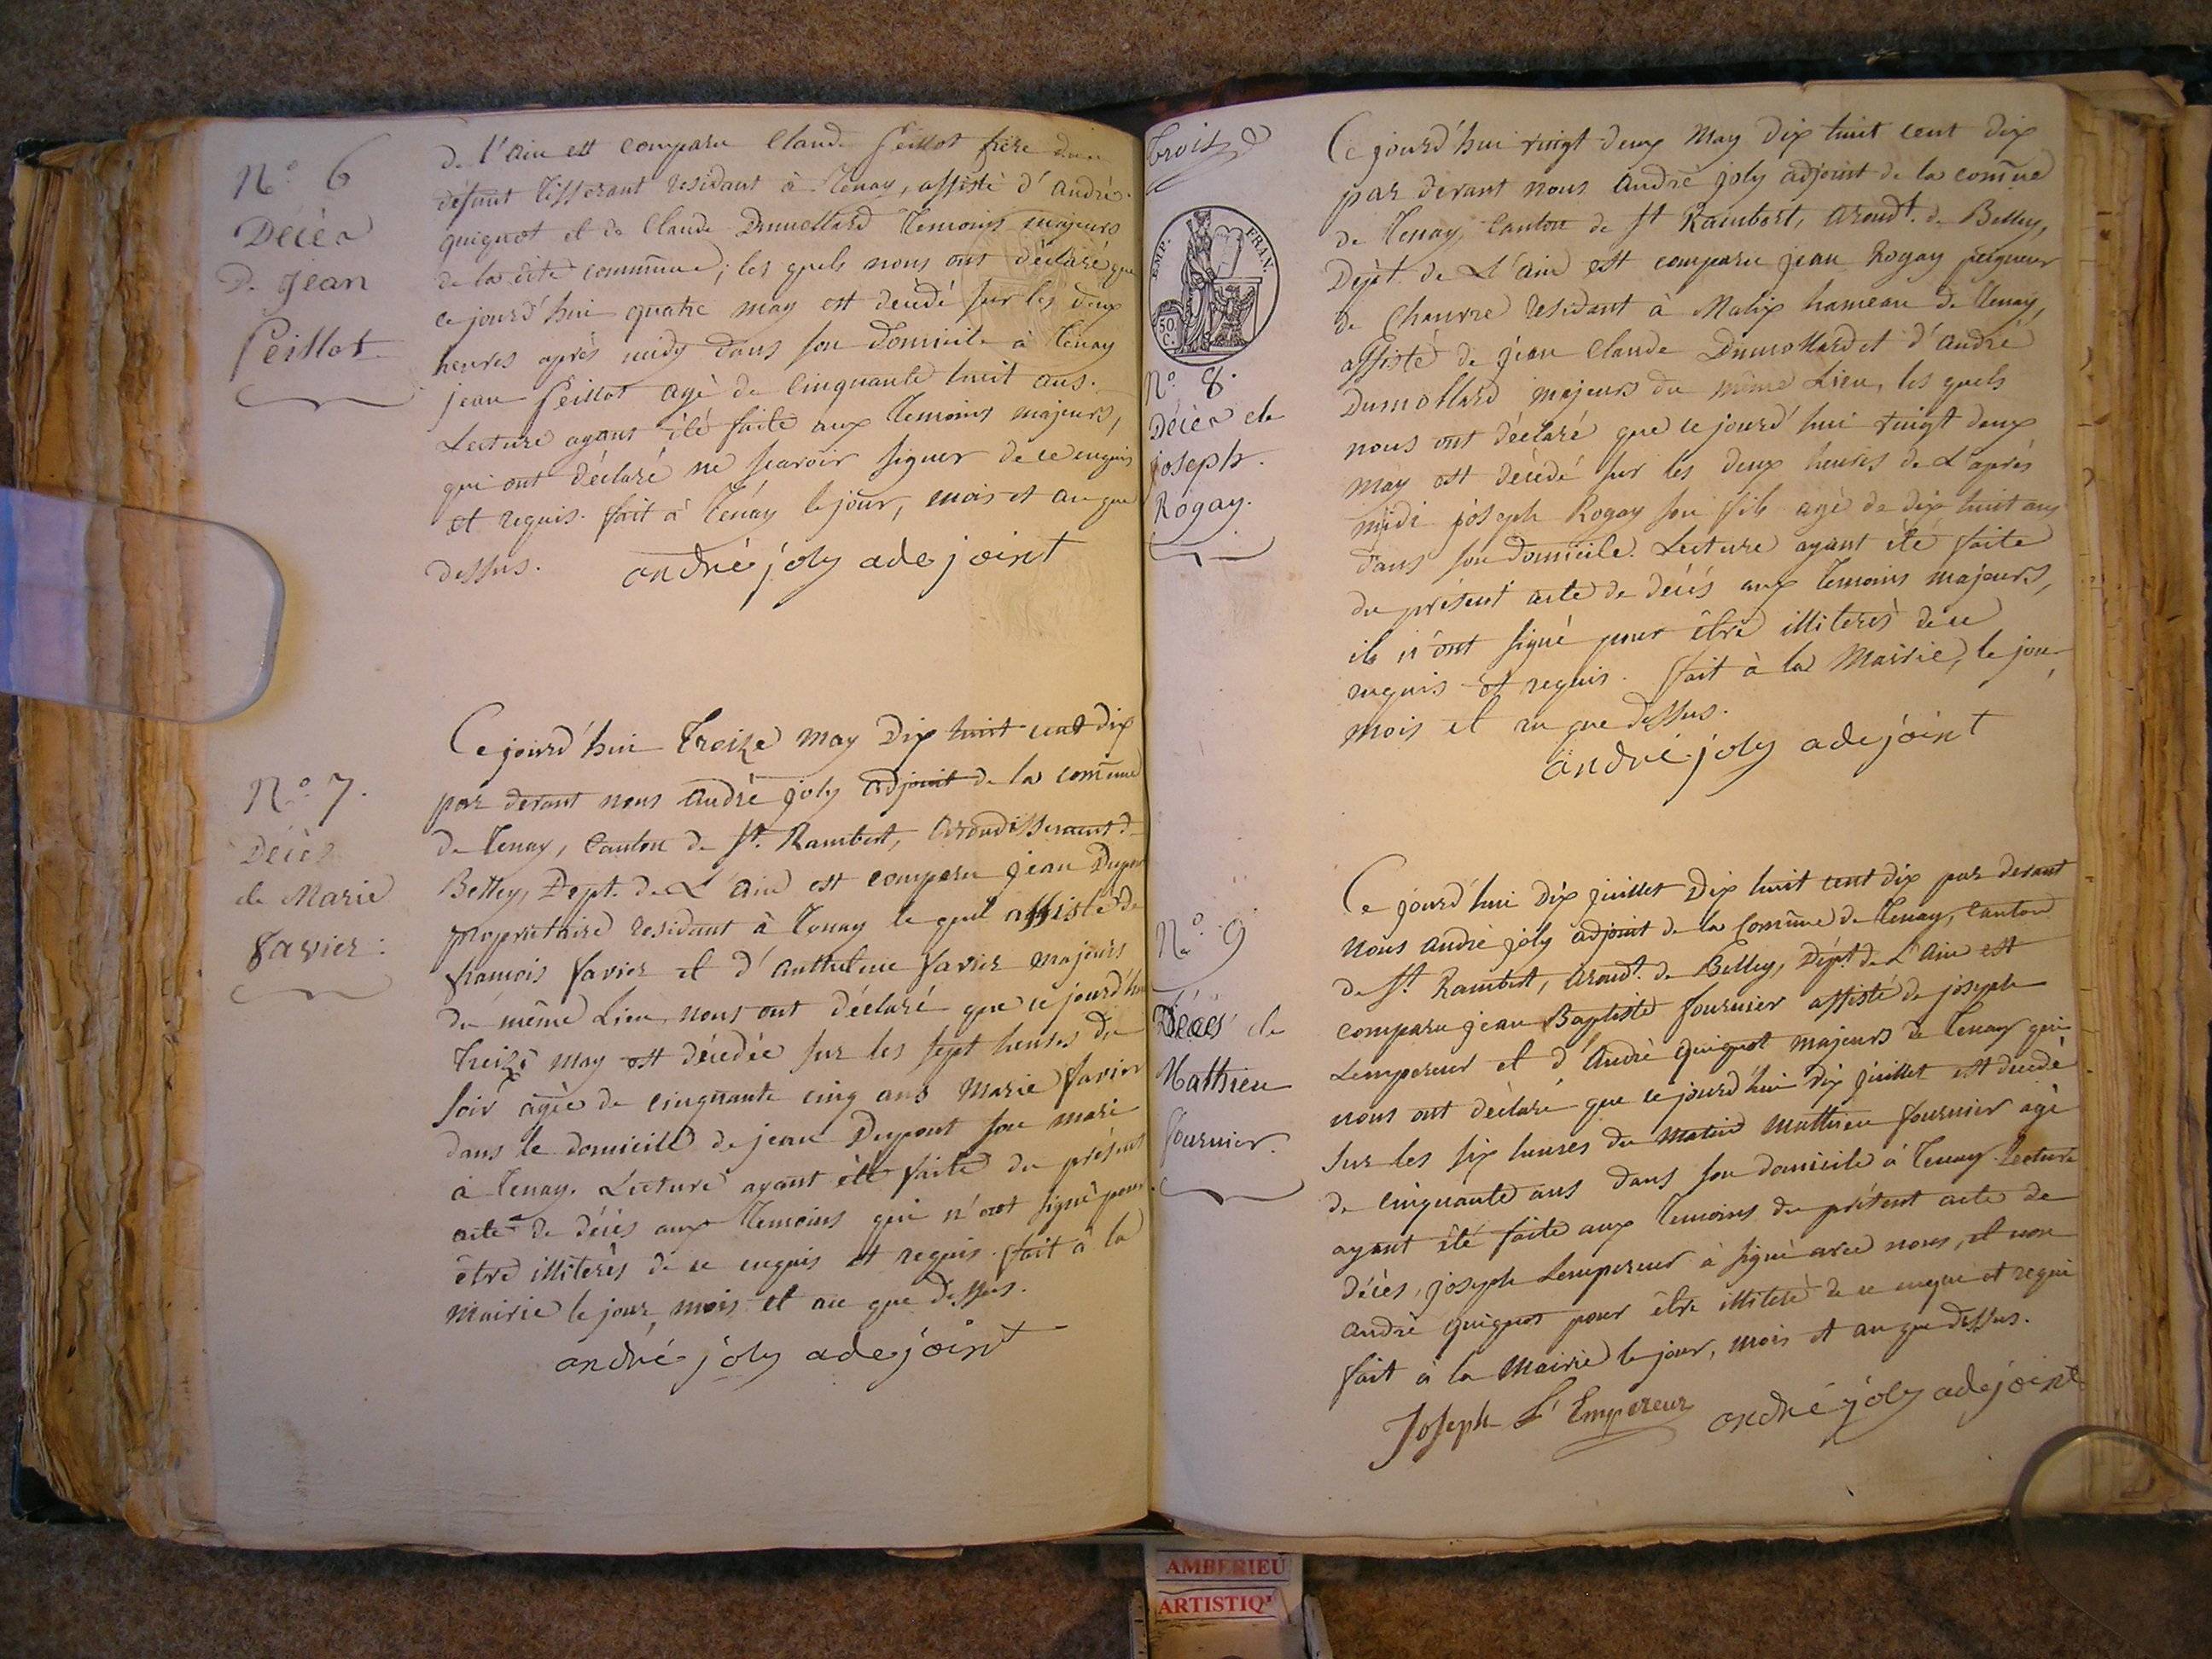 N.o 6
Décès
De jean
Peillot.
de l'Ain est comparu Claude Peillot frère du
défunt tisserant residant à Tenay, assisté d'André
quignot et de Claude Dumollard temoins majeurs
de la dite commune; les quels nous ont déclaré que
ce jourd'hui quatre may est décédé sur les deux
heures après midy dans son domicile à Tenay
jean Peillot agé de cinquante huit ans.
Lecture ayant été faite aux temoins majeurs,
qui ont déclaré ne scavoir signer de ce enquis
et requis. fait à Tenay le jour, mois et an que
dessus. andré joly adejoint
N.o 7.
Décès
de Marie
favier:
Ce jourd'hui treize may Dix huit cent dix
par devant nous André joly adjoint de la commune
de Tenay, Canton de St. Rambert, Arrondissement de
Belley, Dept. de L'ain est comparu jean Dupont
propriétaire residant à Tenay le quel assisté de
francois favier et d'anthelme favier majeurs
du même Lieu, nous ont déclaré que ce jourd'hui
treize may est décédée sur les sept heures du
soir agée de cinquante cinq ans Marie favier
dans le domicile de jean Dupont son mari
à Tenay. Lecture ayant été faite du présent
acte de décès aux temoins qui n'ont signé pour
être illiterés de ce enquis et requis. fait à la
Mairie le jour, mois et an que dessus.
andré joly adejoint
trois
EMP. FRAN.
50 C.
N.o 8.
Décès de
joseph
Rogay.
Ce jourd'hui vingt deux May dix huit cent dix
par devant nous André joly adjoint de la com̃ne
de Tenay, Canton de St Rambert, Arond.t de Belley,
Dépt. de L'ain est comparu jean Rogay peigneur
de Chanvre residant à Malix hameau de Tenay,
assisté de jean Claude Dumollard et d'André
Dumollard majeurs du même Lieu, les quels
nous ont déclaré que ce jourd'hui vingt deux
may est décédé sur les deux heures de L'après
midi joseph Rogay son fils agé de dix huit ans
dans son domicile. Lecture ayant été faite
du présent acte de décès aux temoins majeurs,
ils n'ont signé pour être illiterés de ce
enquis et requis. fait à la Mairie, le jour
mois et an que dessus.
andré joly adejoint
N.o 9
Décès de
Mathieu
fournier.
Ce jourd'hui Dix juillet Dix huit cent dix par devant
nous André joly adjoint de la Com̃une de Tenay, Canton
de St Rambert, Arond.t de Belley, Dépt. de L'Ain est
comparu jean Baptiste fournier assisté de joseph
Lempereur et d'André quignot majeurs de Tenay qui
nous ont déclaré que ce jourd'hui dix juillet est décédé
sur les six heures du matin Mathieu fournier agé
de cinquante ans dans son domicile à Tenay. Lecture
ayant été faite aux temoins du présent acte de
décès, joseph Lempereur à signé avec nous, et non
André quignot pour être illiteré de ce enqui et requi
fait à la Mairie le jour, mois et an que dessus.
Joseph L'Empereur andré joly adejoint
AMBERIEU
ARTISTIQ'